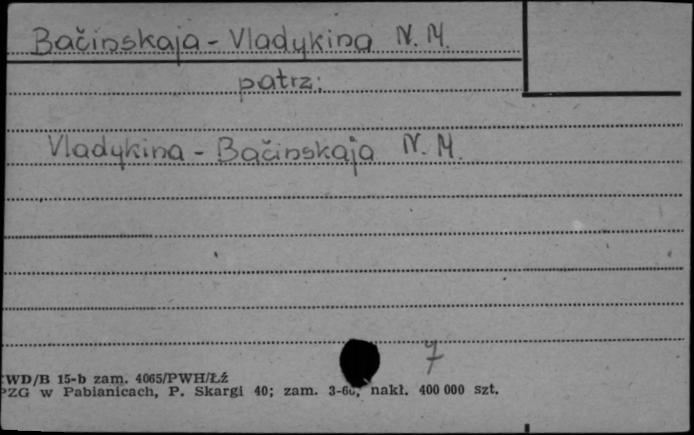 Bačinskaja - Vladykina N. M.
patrz:
Vladykina - Bačinskaja N. M.
7
WD/B 15-b zam. 4065/PWH/Łź
PZG w Pabianicach, P. Skargi 40; zam. nakł. 400 000 szt.